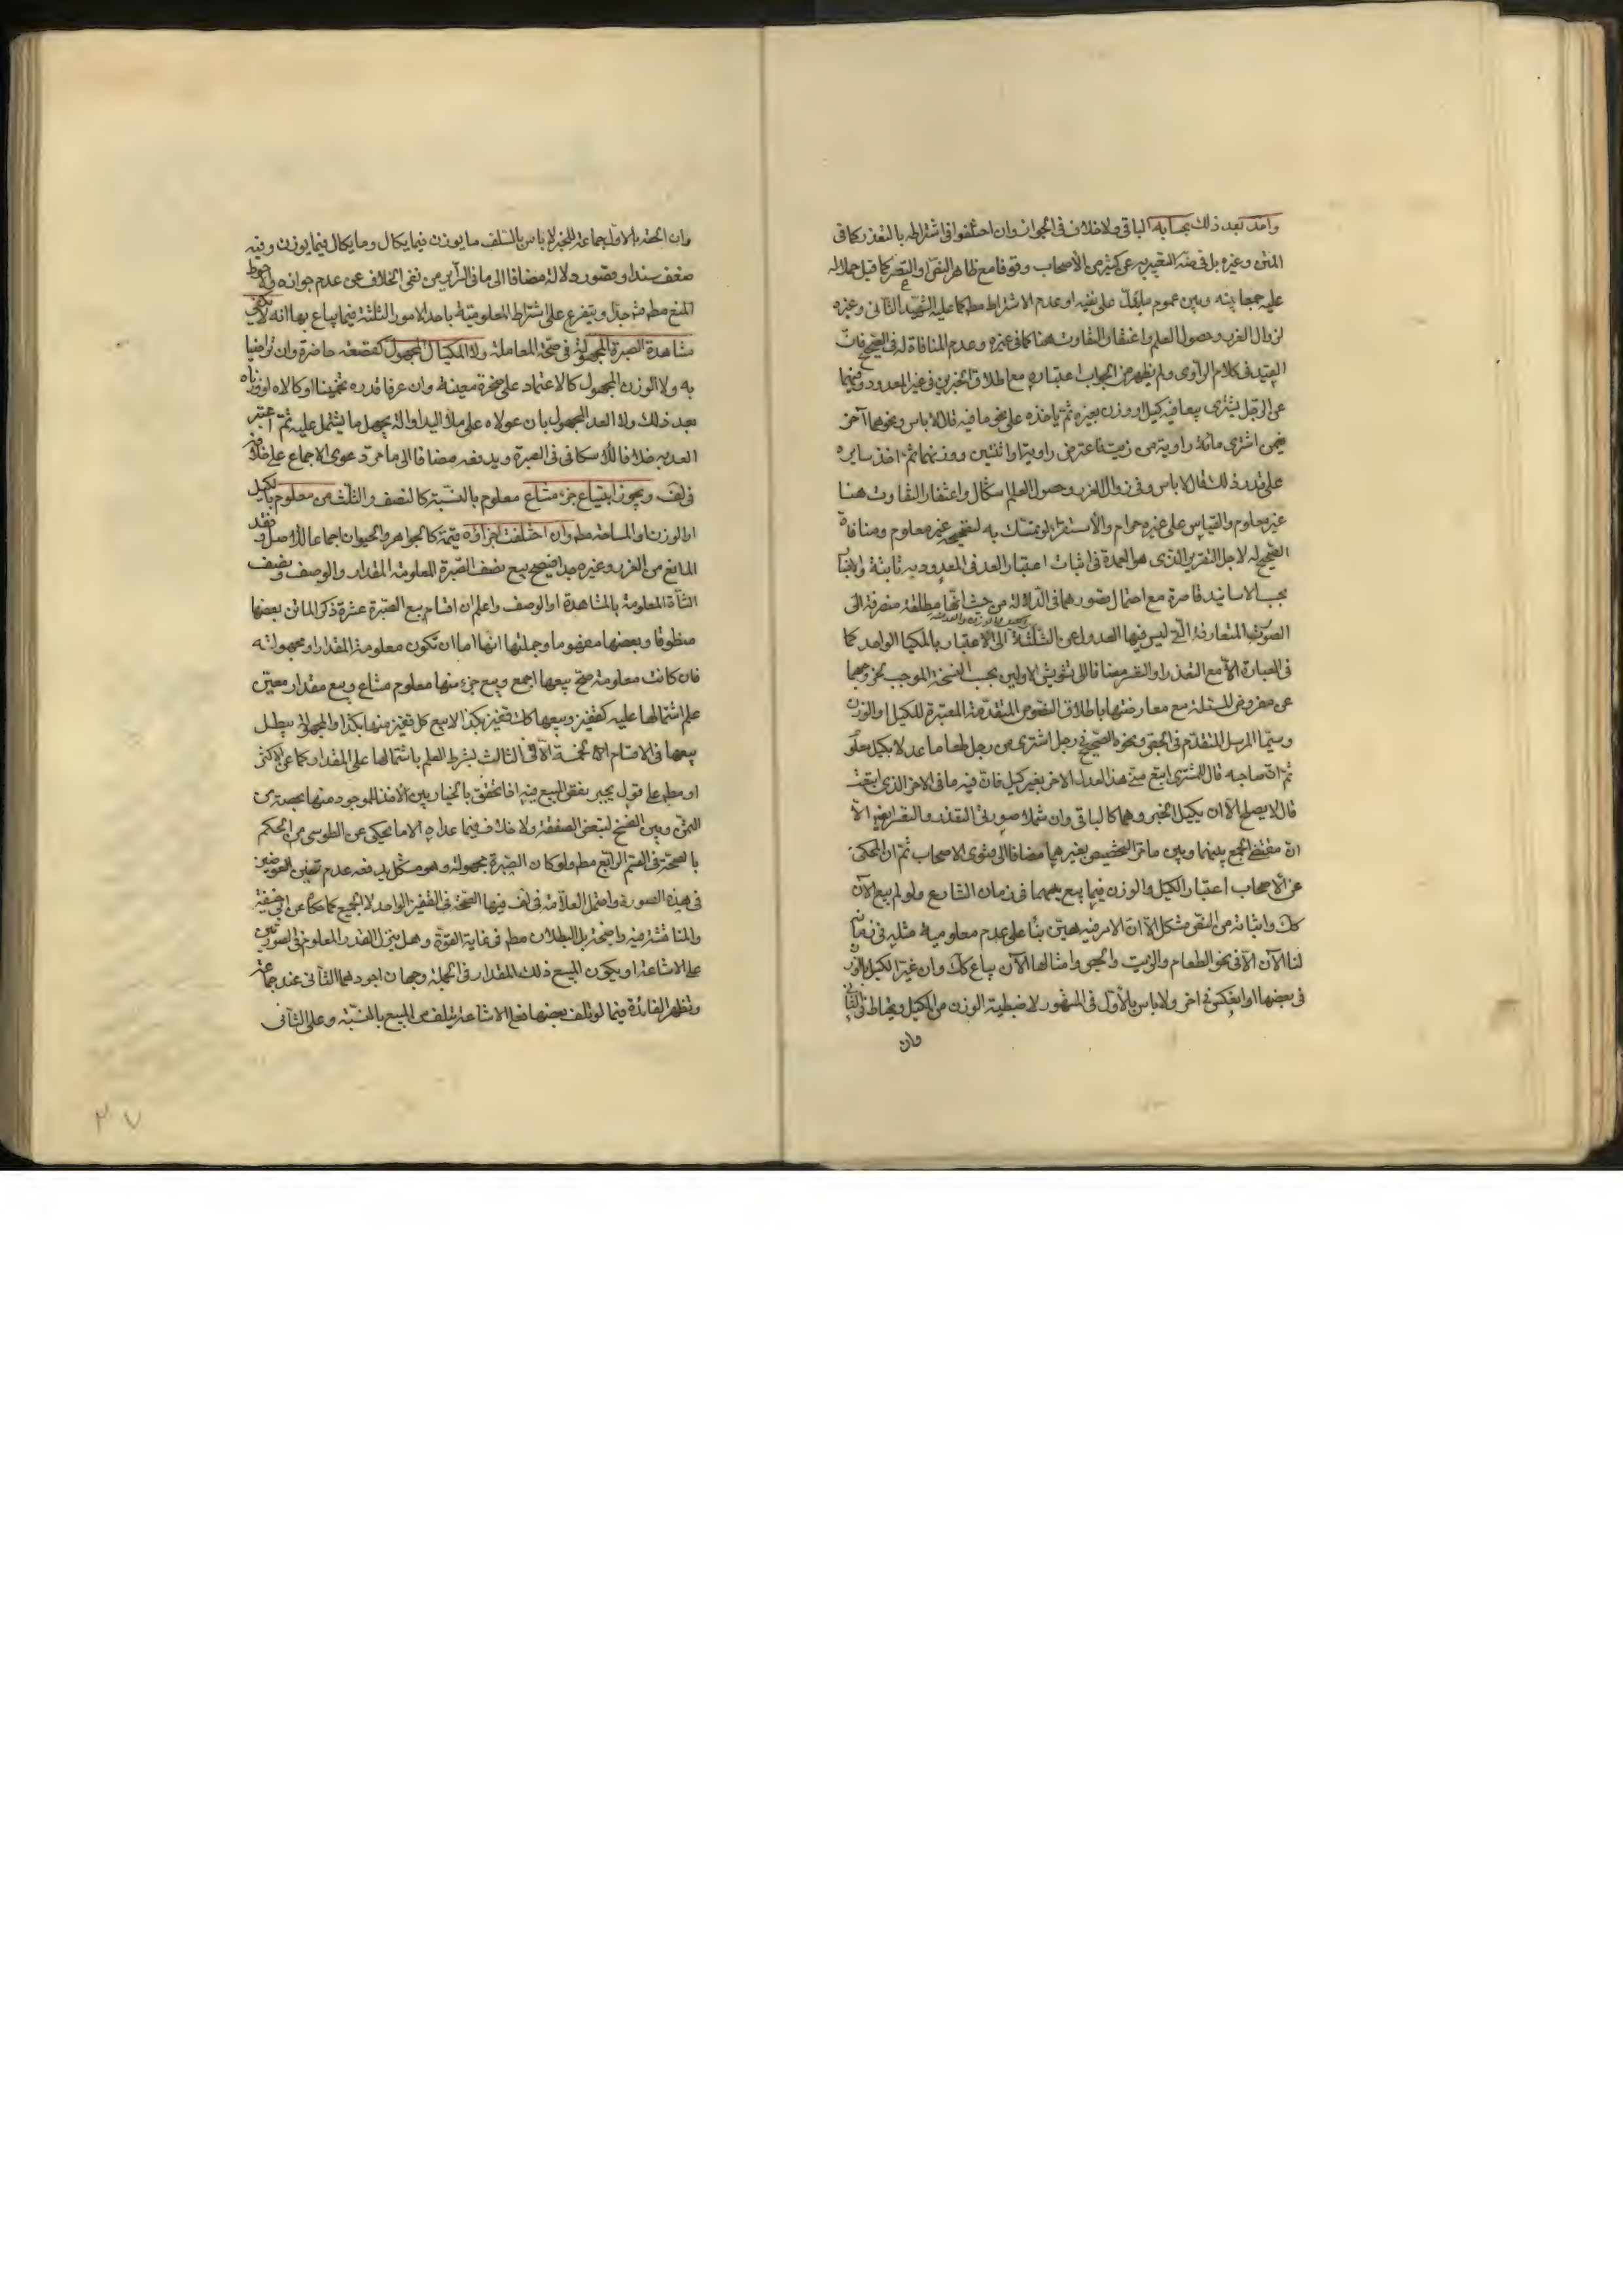 واخذ بعد ذلك بحسابه الباقى ولا خلاف فى الجواز وان اختلفوا فى اشتراطه بالتعذر كما فى
المتن وغيره بل فى التعبير به عن كثير من الأصحاب وقوفا مع ظاهر النص او التعسر كما قيل حملا له
عليه جمعا بينه وبين عموم ما دل على نفيه او عدم الاشتراط مط كما عليه الشهيد الثانى وغيره
لزوال الغرر وحصول العلم واغتفار التفاوت هنا كما فى غيره وعدم المنافاة له فى الصحيح فان
القيد فى كلام الراوى ولم يظهر من الجواب اعتباره مع اطلاق الخبرين فى غير المعدود وفيهما
عن الرجل يشترى بيعا فيه كيل او وزن بغيره ثم ياخذه على نحو ما فيه قال لا باس ونحوهما آخر
فيمن اشترى مائة راوية من زيت فاعترض راوية او اثنتين ووزنهما ثم اخذ سايره
على قدر ذلك قال لا باس وفى زوال الغرر وحصول العلم اشكال واغتفار التفاوت هنا
غير معلوم والقياس على غيره حرام والاستقراء لو تمسك به لتصحيحه غير معلوم ومنافاة
الصحيح له لاجل التقرير الذى هو العمدة فى اثبات اعتبار العد فى المعدود به ثابتة والاخبار
بحسب الاسانيد قاصرة مع احتمال قصورهما فى الدلالة من حيث انها مطلقة منصرفة الى
الصورة المتعارفة التى ليس فيها العدول عن الثلثة الى الاعتبار بالمكيال الواحد كما
فى العبارة الا مع التعذر او التعسر مضافا الى تشويش الاولين بحسب النسخة الموجب لخروجهما
عن مفروض المسئلة مع معارضتها باطلاق النصوص المتقدمة المعتبرة للكيل او الوزن
وسيما المرسل المتقدم فى ونحوه الصحيح فى رجل اشترى من رجل طعاما عدلا بكيل معلوم
ثم ان صاحبه قال للمشترى ابتع منى هذا العدل الآخر بغير كيل فان فيه ما فى الآخر الذى ابتعت
قال لا يصلح الا ان يكيل الخبر وهما كالباقى وان شملا صورتى التعذر والتعسر ايضا الا
ان مقتضى الجمع بينهما وبين ما مر التخصيص بغيرهما مضافا الى فتوى الاصحاب ثم ان المحكى
عن الاصحاب اعتبار الكيل والوزن فيما بيع بهما فى زمان الشارع ولو لم يبع الآن
كك واثباته من النص مشكل الا ان الامر فيه هين بناء على عدم معلومية مثليه فى زماننا
لنا الآن الا فى نحو الطعام والزيت والجص وامثالها الآن يباع كك وان غير الكيل بالوزن
فى بعضها او انعكس فى اخر ولا باس بالأول فى المشهور لاضبطية الوزن من الكيل ويحتاط فى الثانى
وان
وان الحقه بالاول جماعة للخبر لا باس بالسلف ما يوزن فيما يكال وما يكال فيما يوزن وفيه
ضعف سندا وقصور دلالة مضافا الى ما فى السرائر من نفى الخلاف عن عدم جوازه والاحوط
المنع مط جدا ويتفرع على اشتراط المعلومية باحد الامور الثلثة فيما يباع بها انه لا يكفى
مشاهدة الصبرة المجهولة فى صحة المعاملة ولا المكيال المجهول كقصعة حاضرة وان تراضيا
به ولا الوزن المجهول كالاعتماد على صخرة معينة وان عرفا قدره تخمينا او كالاه او وزناه
بعد ذلك ولا العد المجهول بان عولاه على ملأ اليد او آلة يجهل ما يشتمل عليه ثم اعتبر
العد به خلافا للاسكافى فى الصبرة ويدفعه مضافا الى ما مر دعوى الاجماع على خلافه
فى لف ويجوز ابتياع جزء مشاع معلوم بالنسبة كالنصف والثلث من معلوم بالكيل
او الوزن او المساحة مط وان اختلفت اجزاؤه قيمة كالجواهر والحيوان اجماعا للاصل وفقد
المانع من الغرر وغيره جدا فيصح بيع نصف الصبرة المعلومة المقدار والوصف ونصف
الشاة المعلومة بالمشاهدة او الوصف واعلم ان اقسام بيع الصبرة عشرة ذكر الماتن بعضها
منطوقا وبعضها مفهوما وجملتها انها اما ان تكون معلومة المقدار او مجهولته
فان كانت معلومة صح بيعها اجمع وبيع جزء منها معلوم مشاع وبيع مقدار معين
علم اشتمالها عليه كقفيز وبيعها كل قفيز بكذا لا بيع كل قفيز منها بكذا والمجهولة يبطل
بيعها فى الاقسام الخمسة الا فى الثالث بشرط العلم باشتمالها على المقدار كما عن الاكثر
او مط على قول يجبر نقص المبيع فيه اذا تحقق بالخيار بين الاخذ للموجود منها بحصته من
الثمن وبين الفسخ لتبعض الصفقة ولا خلاف فيما عداه الا ما يحكى عن الطوسى من الحكم
بالصحة فى القسم الرابع مط ولو كان الصبرة مجهولة وهو مشكل يدفعه عدم تعين العوضين
فى هذه الصورة واحتمل العلامة فى لف فيها الصحة فى القفيز الواحد لا الجميع كما حكاه عن ابى حنيفة
والمناقشة فيه واضحة بل البطلان مط فى غاية القوة وهل ينزل القدر المعلوم فى الصورتين
على الاشاعة او يكون المبيع ذلك المقدار فى الجملة وجهان اجودهما الثانى عند جماعة
وتظهر الفائدة فيما لو تلف بعضها فعلى الاشاعة يتلف من المبيع بالنسبة وعلى الثانى
٣٧